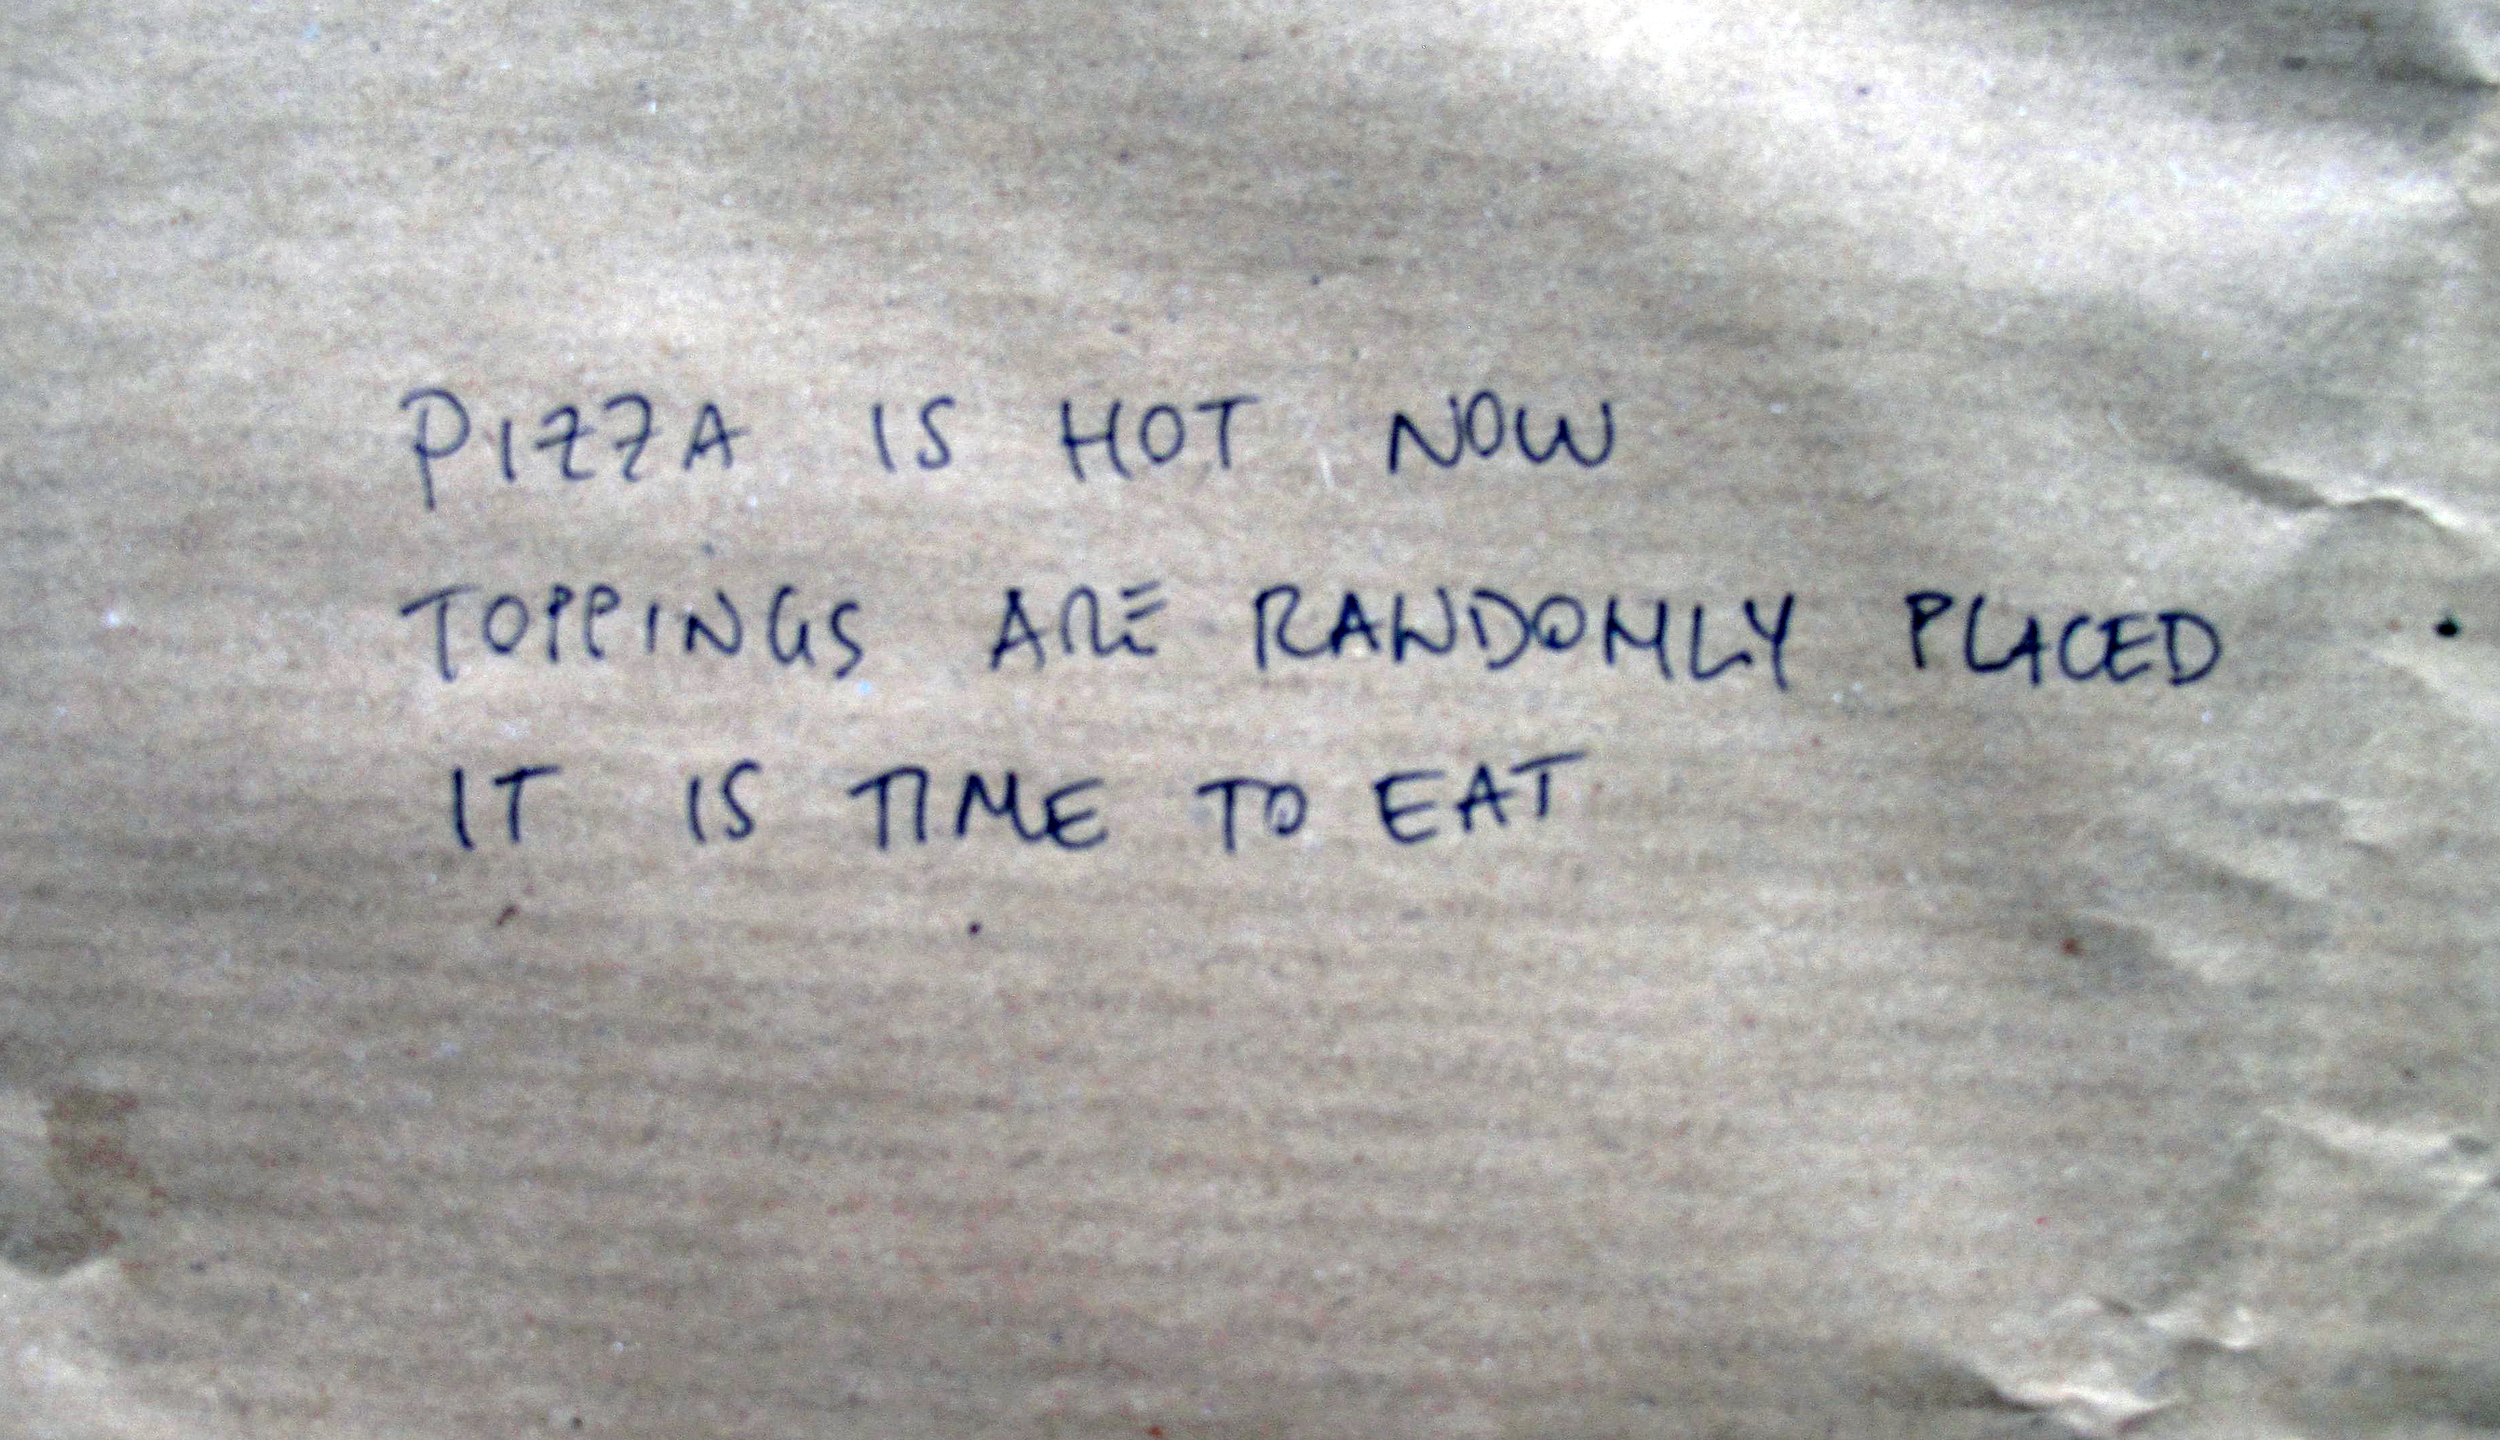 PIZZA IS HOT NOW
TOPPINGS ARE RANDOMLY PLACED
IT IS TIME TO EAT